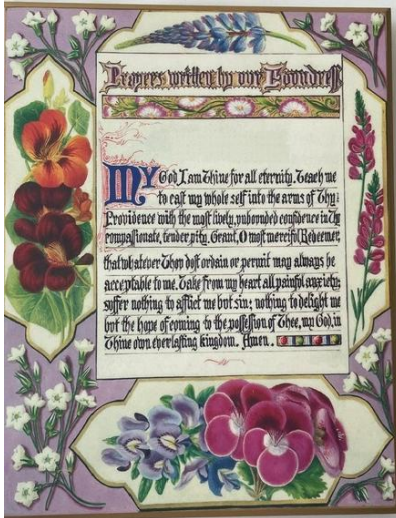 Prayers written by our Foundress
My God, I am Thine for all eternity. Teach me
to cast my whole self into the arms of Thy
Providence with the most lively, unbounded confidence in Thy
compassionate, tender pity. Grant, O most merciful Redeemer,
that whatever Thou dost ordain or permit may always be
acceptable to me. Take from my heart all painful anxiety;
suffer nothing to afflict me but sin; nothing to delight me
but the hope of coming to the possession of Thee, my God, in
Thine own everlasting kingdom. Amen.